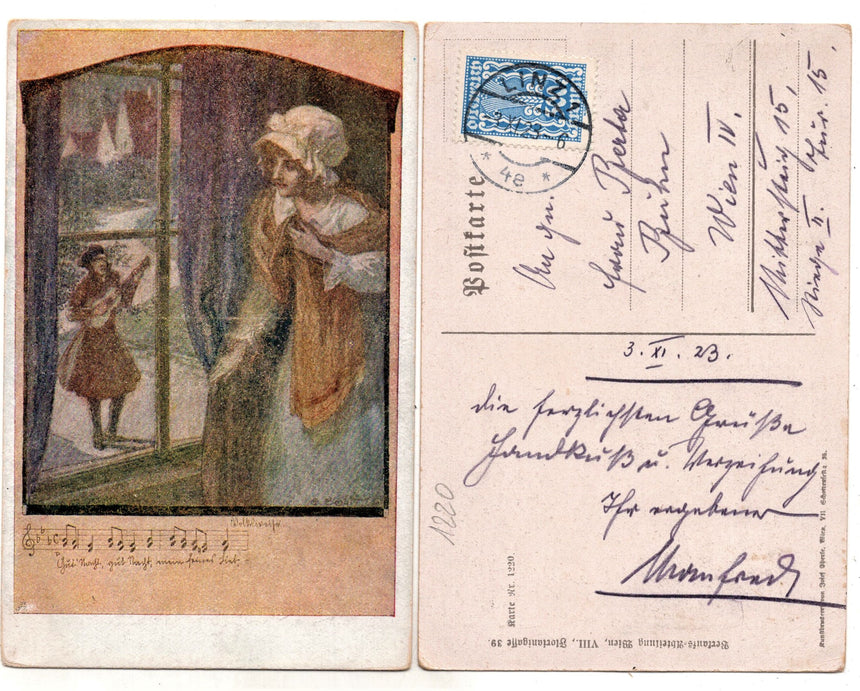 Volksweise
Gut' Nacht, gut' Nacht, mein feines Lieb
Postkarte
LINZ 1
* 4e *
An gn.
Frau Berta
Wien IV.
Mittersteig 15,
Stiege II. Tür. 15.
3. XI. 23.
die herzlichsten Grüße
Handkuß u. Verzeihung
Ihr ergebener
Manfred
1220
Karte Nr. 1220.
Verkaufs-Abteilung Wien, VIII., Florianigasse 39.
Kunstdruckerei von Josef Eberle, Wien, VII. Schottenfeldg. 38.